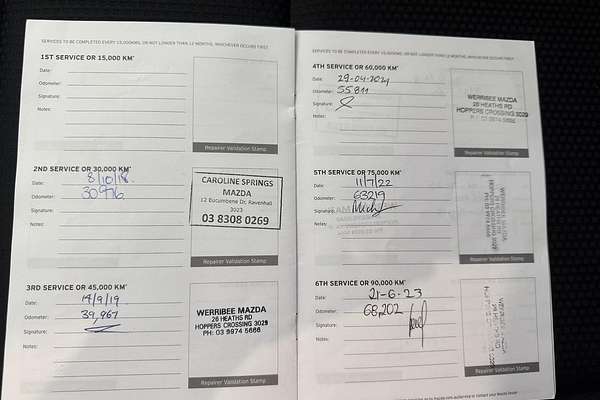 SERVICES TO BE COMPLETED EVERY 15,000KMS, OR NOT LONGER THAN 12 MONTHS, WHICHEVER OCCURS FIRST
1ST SERVICE OR 15,000 KM*
Date:
Odometer:
Signature:
Notes:
Repairer Validation Stamp
2ND SERVICE OR 30,000 KM*
Date: 8/10/18
Odometer: 30
Signature:
Notes:
CAROLINE SPRINGS
MAZDA
12 Eucumbene Dr, Ravenhall
3023
03 8308 0269
Repairer Validation Stamp
3RD SERVICE OR 45,000 KM*
Date: 14/9/19
Odometer: 39,967
Signature:
Notes:
WERRIBEE MAZDA
26 HEATHS RD
HOPPERS CROSSING 3029
PH: 03 9974 5666
Repairer Validation Stamp
SERVICES TO BE COMPLETED EVERY 15,000KMS, OR NOT LONGER THAN 12 MONTHS, WHICHEVER OCCURS FIRST
4TH SERVICE OR 60,000 KM*
Date: 29-04-2021
Odometer: 55811
Signature:
Notes:
WERRIBEE MAZDA
26 HEATHS RD
HOPPERS CROSSING 3029
PH: 03 9974 5666
Repairer Validation Stamp
5TH SERVICE OR 75,000 KM*
Date: 11/7/22
Odometer: 63219
Signature:
Notes:
WERRIBEE MAZDA
26 HEATHS RD
HOPPERS CROSSING 3029
PH: 03 9974 5666
Repairer Validation Stamp
6TH SERVICE OR 90,000 KM*
Date: 21-6-23
Odometer: 68,202
Signature:
Notes:
WERRIBEE MAZDA
Repairer Validation Stamp